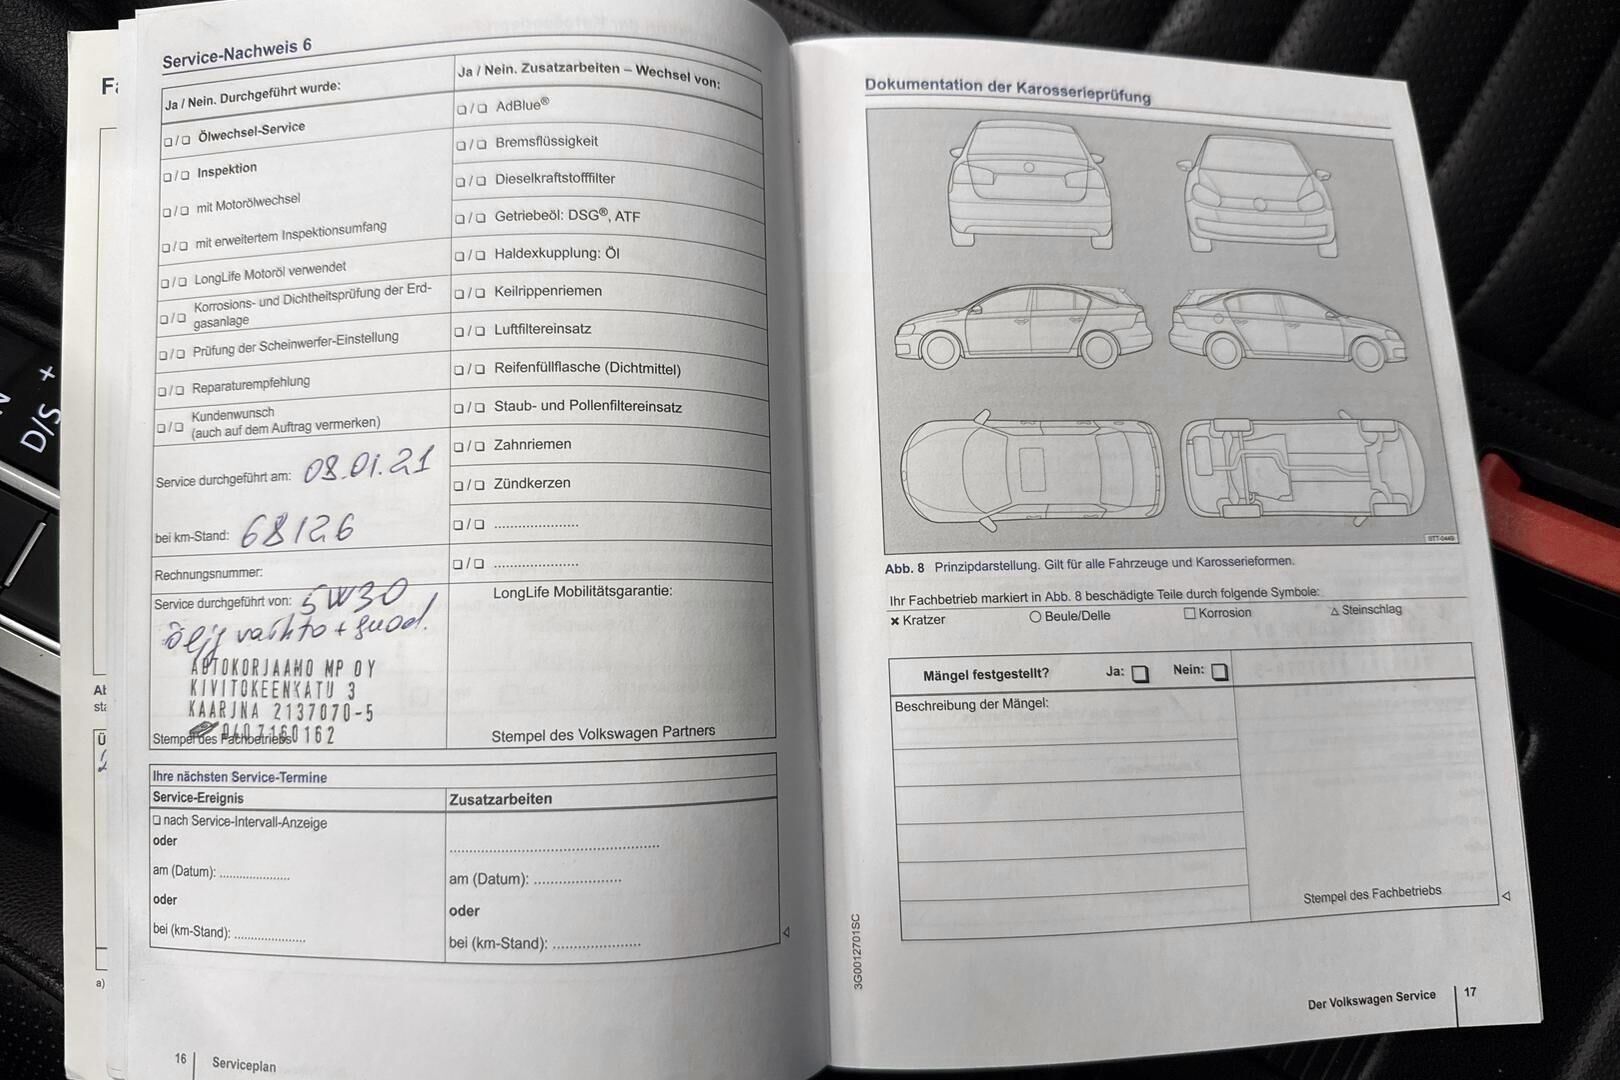 Service-Nachweis 6
Ja / Nein. Durchgeführt wurde:
❏ / ❏ Ölwechsel-Service
❏ / ❏ Inspektion
❏ / ❏ mit Motorölwechsel
❏ / ❏ mit erweitertem Inspektionsumfang
❏ / ❏ LongLife Motoröl verwendet
❏ / ❏ Korrosions- und Dichtheitsprüfung der Erd-
gasanlage
❏ / ❏ Prüfung der Scheinwerfer-Einstellung
❏ / ❏ Reparaturempfehlung
❏ / ❏ Kundenwunsch
(auch auf dem Auftrag vermerken)
Service durchgeführt am: 08.01.21
bei km-Stand: 68126
Rechnungsnummer:
Service durchgeführt von: 5W30
öljy vaihto + suod.
AUTOKORJAAMO MP OY
KIVITOKEENKATU 3
KAARINA 2137070-5
0407160162
Stempel des Fachbetriebs
Ja / Nein. Zusatzarbeiten – Wechsel von:
❏ / ❏ AdBlue®
❏ / ❏ Bremsflüssigkeit
❏ / ❏ Dieselkraftstofffilter
❏ / ❏ Getriebeöl: DSG®, ATF
❏ / ❏ Haldexkupplung: Öl
❏ / ❏ Keilrippenriemen
❏ / ❏ Luftfiltereinsatz
❏ / ❏ Reifenfüllflasche (Dichtmittel)
❏ / ❏ Staub- und Pollenfiltereinsatz
❏ / ❏ Zahnriemen
❏ / ❏ Zündkerzen
❏ / ❏ ......................
❏ / ❏ ......................
LongLife Mobilitätsgarantie:
Stempel des Volkswagen Partners
Ihre nächsten Service-Termine
Service-Ereignis
❏ nach Service-Intervall-Anzeige
oder
am (Datum): ..................
oder
bei (km-Stand): ..................
Zusatzarbeiten
.......................................................
am (Datum): ......................
oder
bei (km-Stand): ......................
16 Serviceplan
Dokumentation der Karosserieprüfung
BTT-0449
Abb. 8 Prinzipdarstellung. Gilt für alle Fahrzeuge und Karosserieformen.
Ihr Fachbetrieb markiert in Abb. 8 beschädigte Teile durch folgende Symbole:
× Kratzer ○ Beule/Delle □ Korrosion △ Steinschlag
Mängel festgestellt? Ja: ❏ Nein: ❏
Beschreibung der Mängel:
Stempel des Fachbetriebs
3G0012701SC
Der Volkswagen Service 17
D/S +